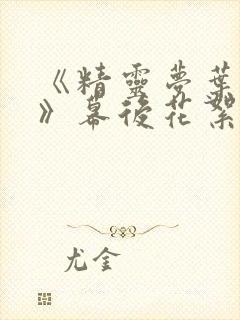 《精靈夢葉
》幕後花絮
尤金